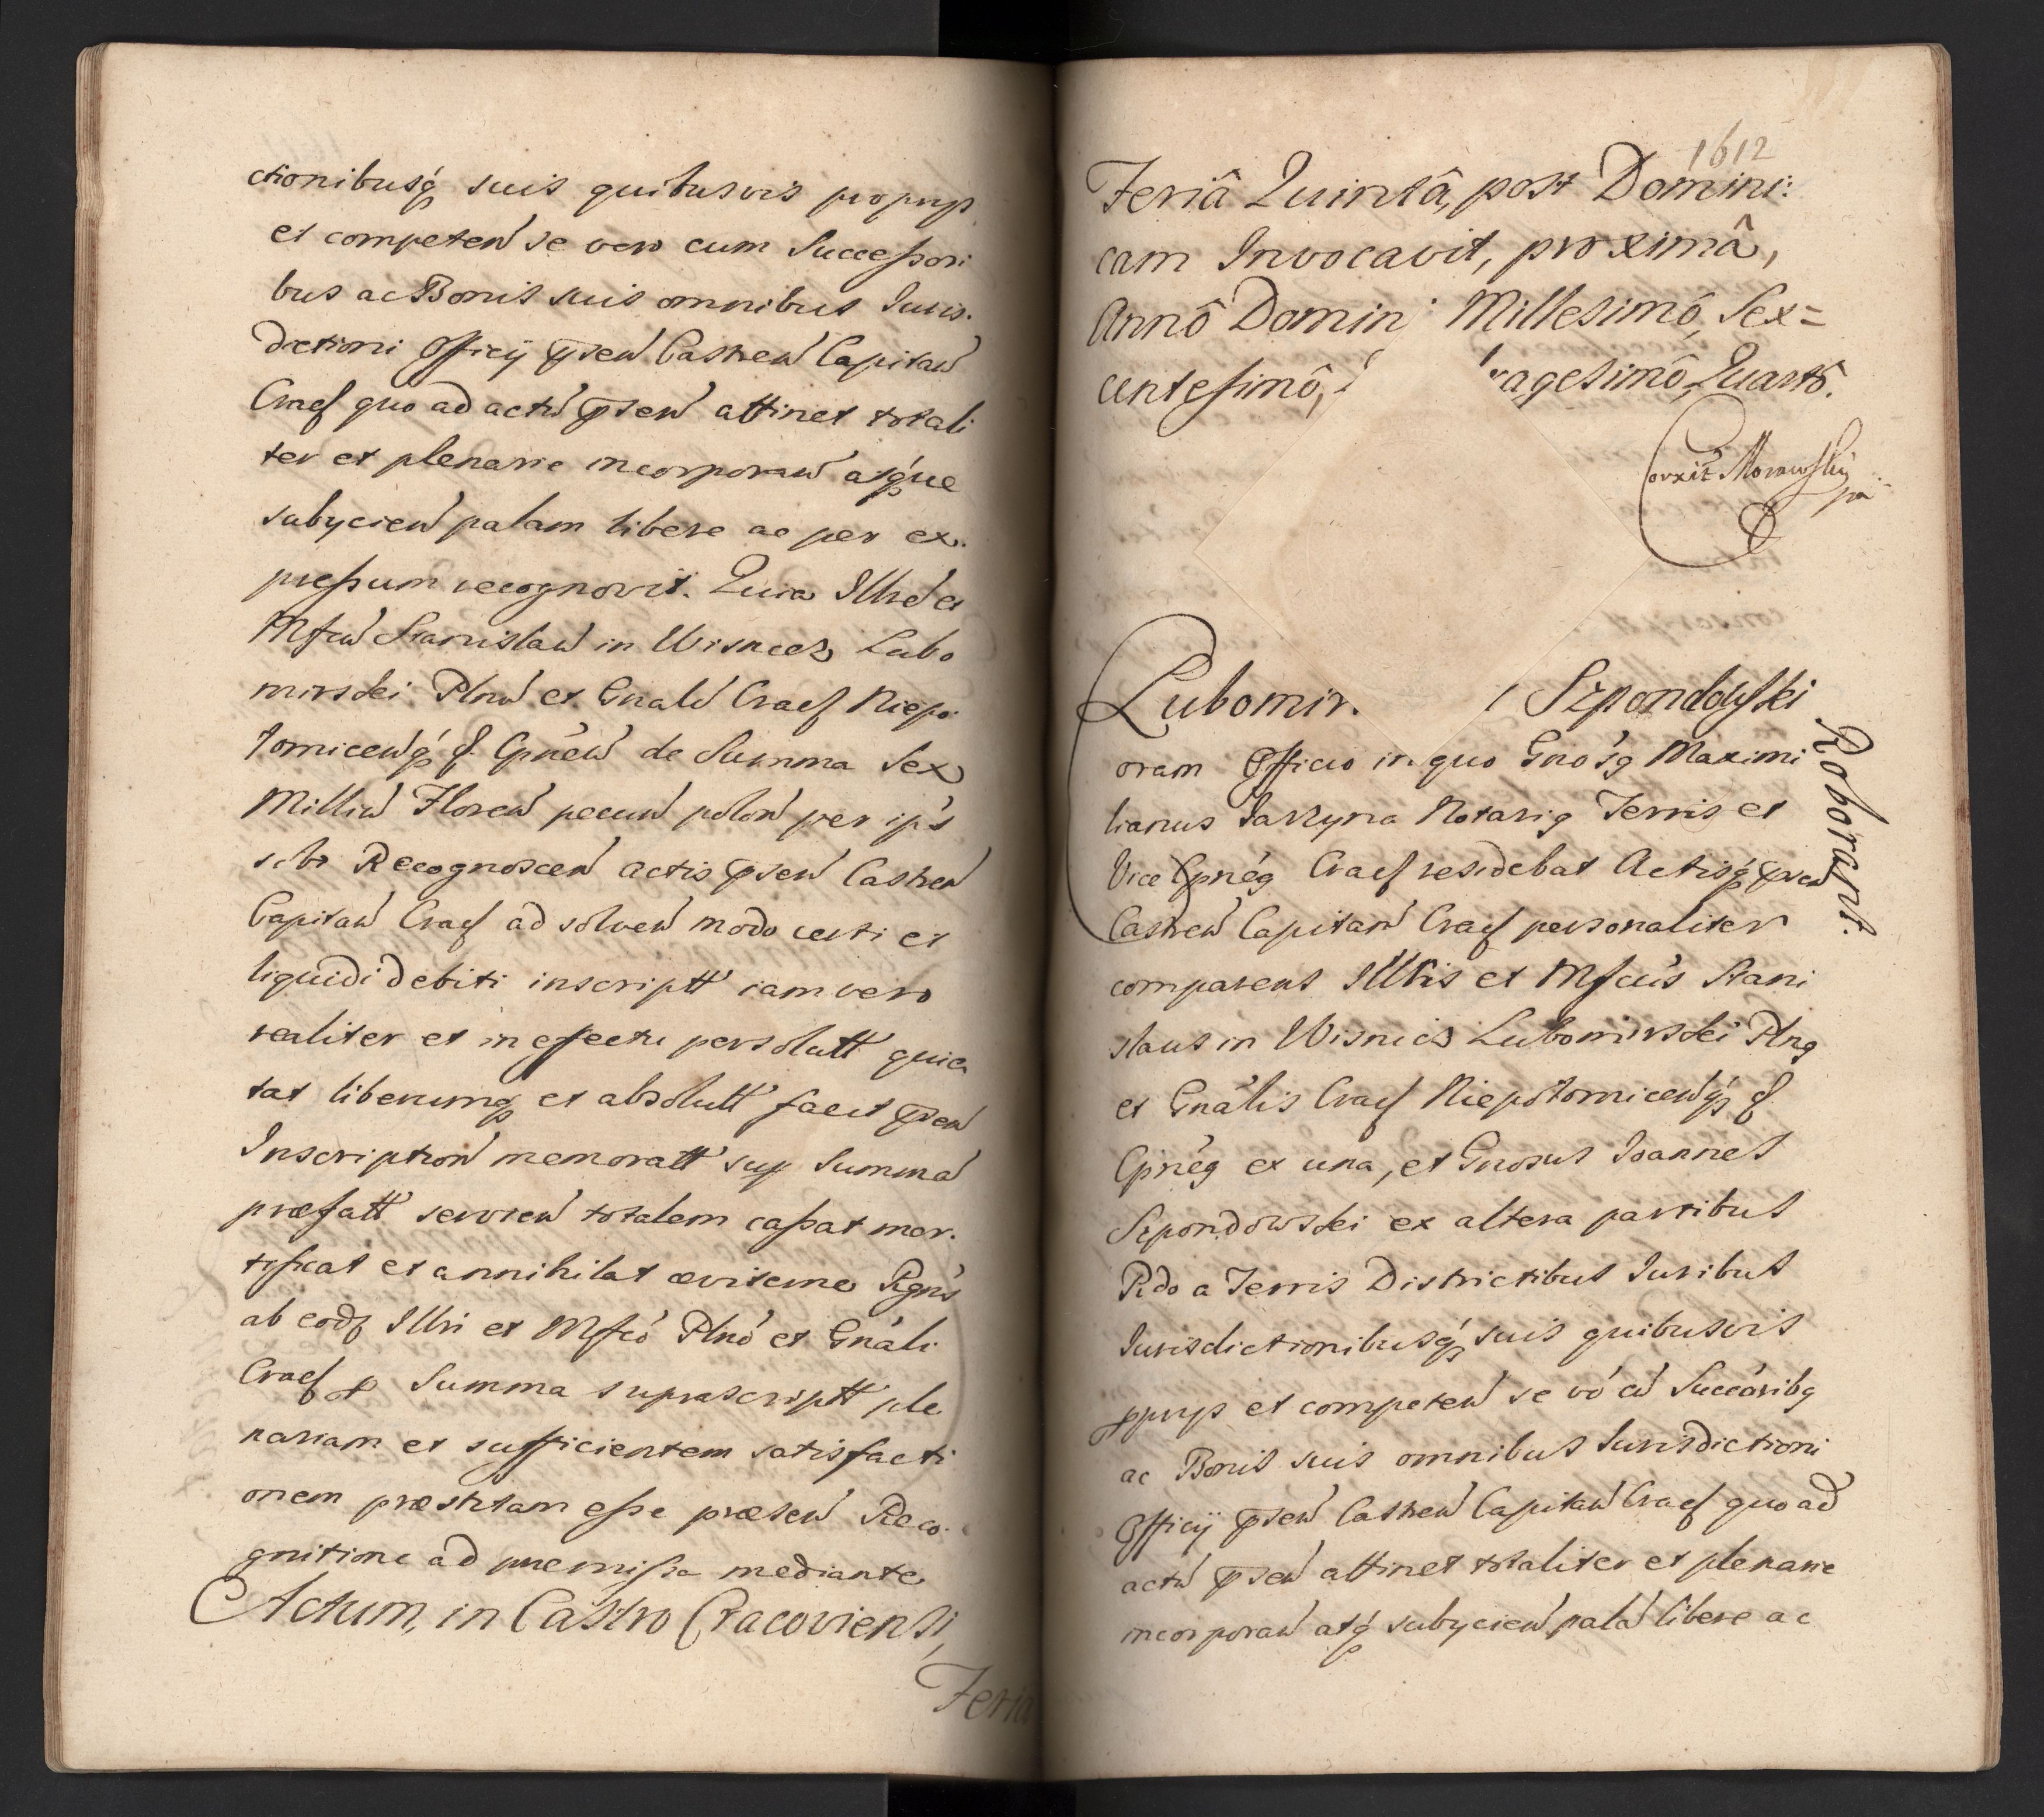 ctionibusq́ suis quibusvis proprys
et competen̄ se vero cum Succeßori
bus ac Bonis suis omnibus Juris.
dictioni Officÿ p̄sen̄ Castren̄ Capitan̄
Cracẜ quo ad actū p̄sen̄ attinet totali
ter et plenarie incorporan̄ atq́ue
subycien̄ palam libere ac per ex.
preßum recognovit. Quia Illrē et
Mfcū Stanislaū in Wisnicz Lubo
mirski Pln̄ū et Gnalē Cracẜ Niepo
łomicen̄q́
de Summa Sex
Milliū Floren̄ pecun̄ polon̄ per ip̄s
sibi Recognoscen̄ actis p̄sen̄ Castren̄
Capitan̄ Cracẜ ad solven̄ modo certi et
liquidi debiti inscriptt iam vero
realiter et in effectu persolutt quie
tat liberumq́ et absolutt facit p̄sen̄
Inscription̄ memoratt sup Summā
præfatt servien̄ totalem caßat mor.
tificat et annihilat æviterne
ab eodꝫ Illri et Mfcó Plnó et Gnáli
Cracẜ p Summa suprascriptt ple
nariam et sufficientem satisfacti
onem præstitam eße præsen̄ Reco.
gnitione ad præmißa mediante
Actum, in Castro Cracoviensi,
Feria
1612
Feriâ Quintâ, post Domini:
cam Invocavit, proximâ,
Annô Domini Millesimô, Sex=
centesimô, ragesimô, Quartô.
Corxit Morawski
pa
Lubomir. Szpondowski
Roborast.
oram Officio in quo Gnósq Maximi
lianus Jarzyna Notariq Terris et
Vice Cpnég Cracẜ residebat Actisq́ p̄sen̄
Castren̄ Capitan̄ Cracẜ personaliter
comparens Illris et Mfcús Stani
slaus in Wisnicz Lubomirski Plnq
et Gnális Cracẜ Niepołomicen̄q́
Cpnég ex una, et Gnosus Joannes
Szpondowski ex altera partibus
Rdo a Terris Districtibus Juribus
Jurisdictionibusq́ suis quibusvis
pprys et competen̄ se vó cū Succáribq
ac Bonis suis omnibus Jurisdictioni
Officÿ p̄sen̄ Castren̄ Capitan̄ Cracẜ quo ad
actū p̄sen̄ attinet totaliter et plenarie
incorporan̄ atq́ subycien̄ palā libere ac